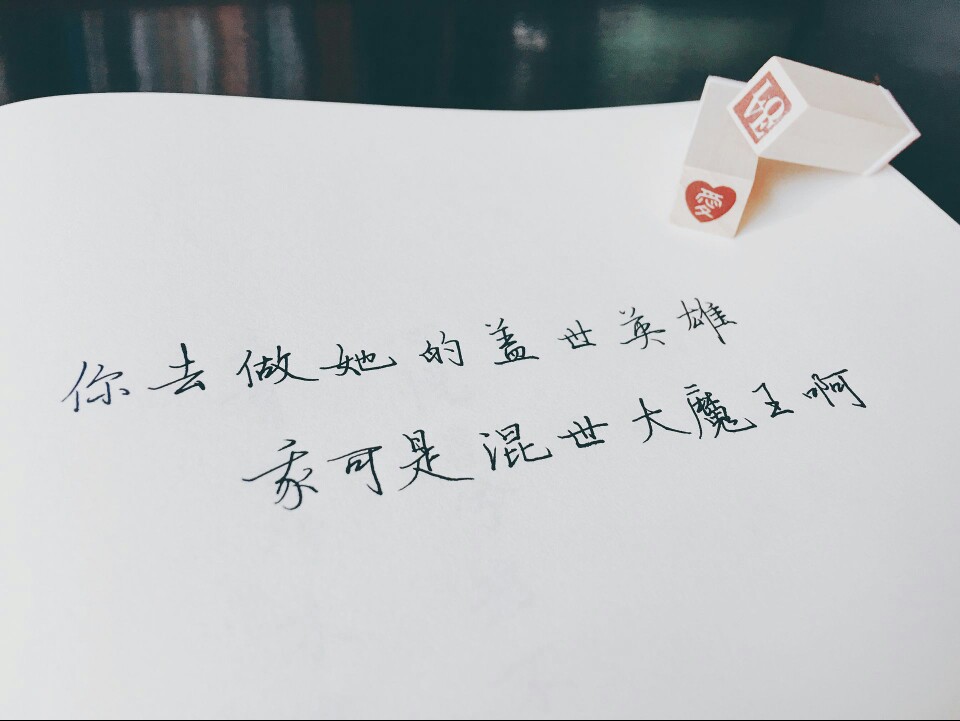 LOVE
愛
你去做她的盖世英雄
我可是混世大魔王啊